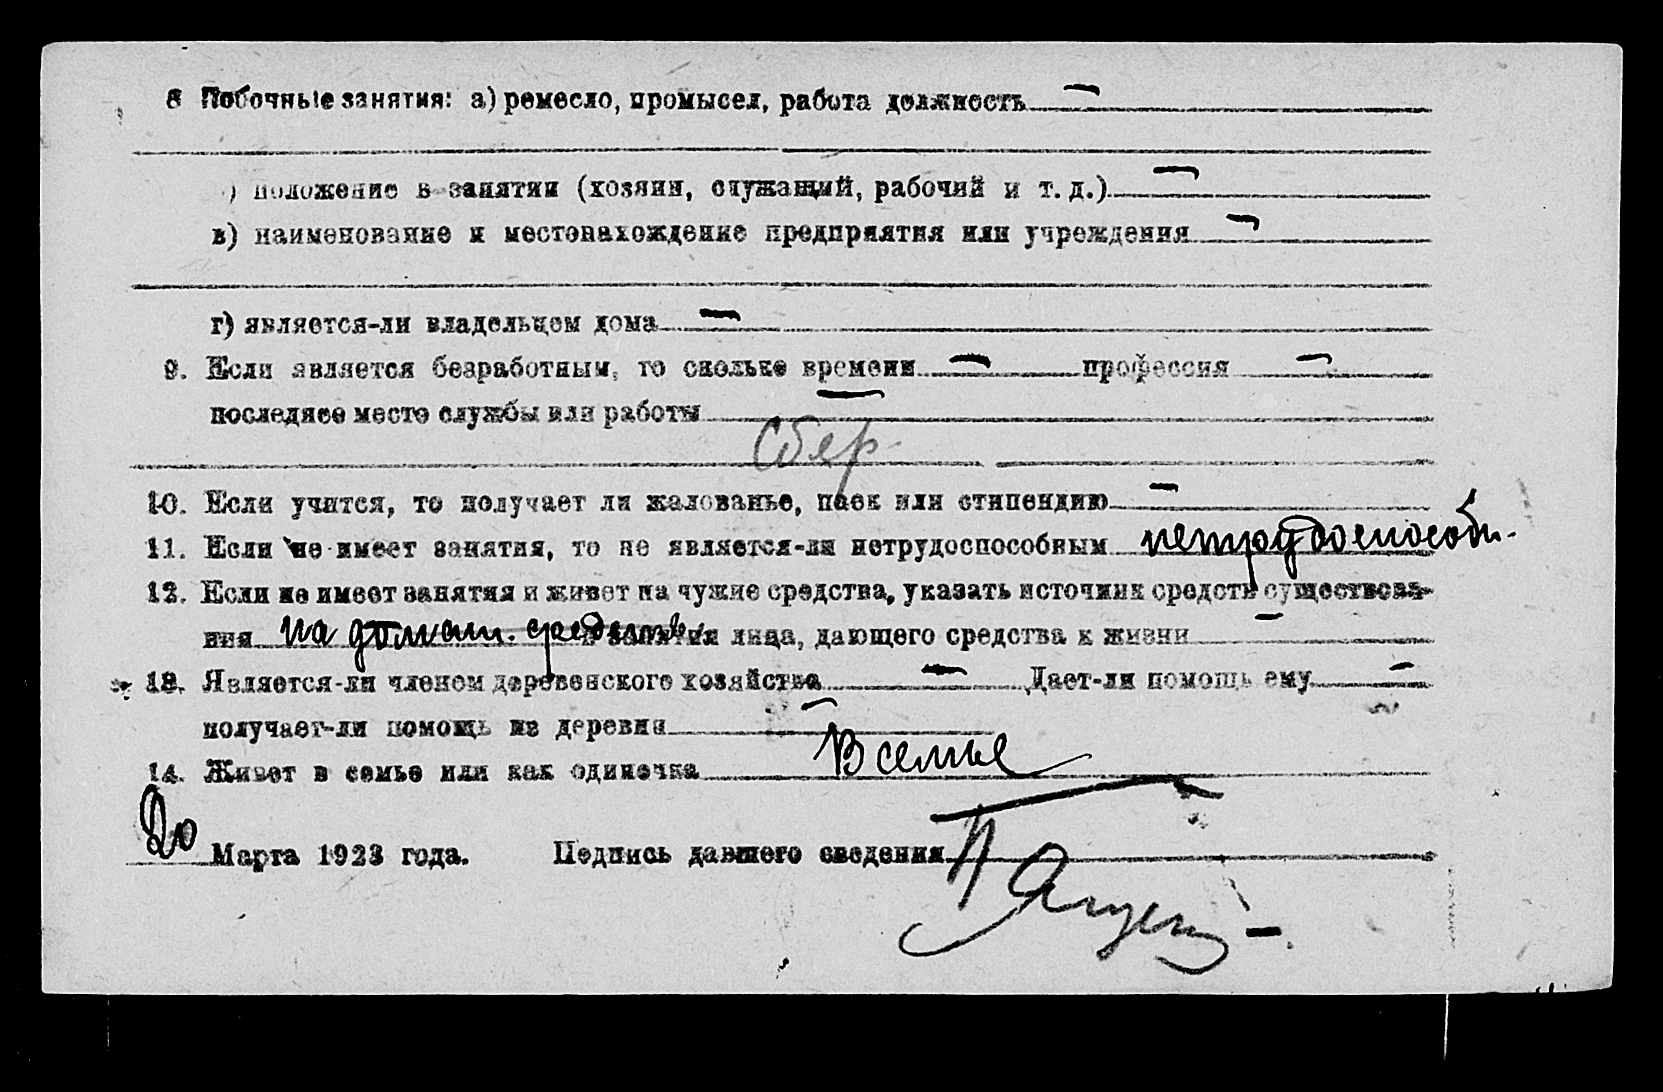 8 Побочные занятия: а) ремесло, промысел, работа должность —
) положение в занятии (хозяин, служащий, рабочий и т. д.) —
в) наименование и местонахождение предприятия или учреждения —
г) является-ли владельцем дома —
9. Если является безработным, то сколько времени — профессия —
последнее место службы или работы —
Сбер
10. Если учится, то получает ли жалованье, паек или стипендию —
11. Если не имеет занятия, то не является-ли нетрудоспособным нетрудоспособн.
12. Если не имеет занятия и живет на чужие средства, указать источник средств существова-
ния на средства занятия лица, дающего средства к жизни —
13. Является-ли членом деревенского хозяйства — Дает-ли помощь ему —
получает-ли помощь из деревни —
14. Живет в семье или как одиночка В семье
20 Марта 1923 года. Подпись давшего сведения